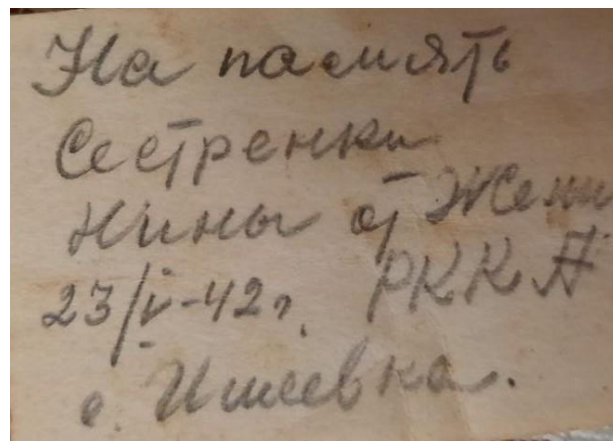 На память
Сестренки
Нины от Жени
23/V-42г. РККА
с. Ишеевка.